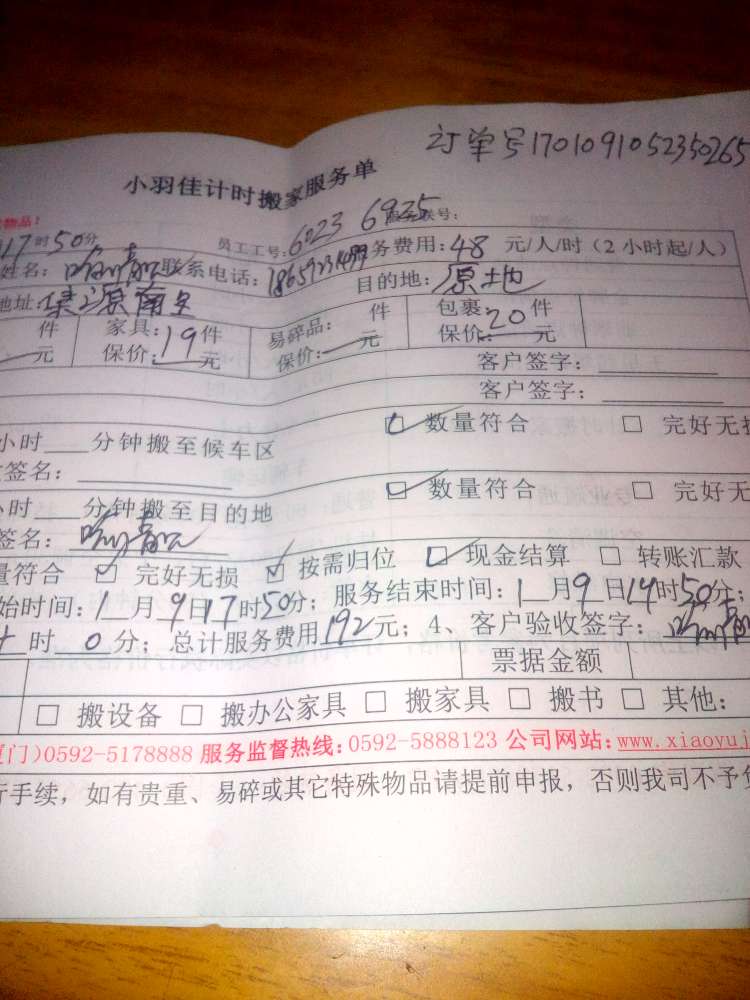 订单号17010910523502​65
小羽佳计时搬家服务单
物品:
17时50分 员工工号:6023 6925 号:
姓名: 联系电话: 务费用:48 元/人/时(2小时起/人)
地址: 目的地:原地
件 家具:19件 易碎品: 件 包裹: 件
元 保价: 元 保价: 元 保价:20 元
客户签字:
客户签字:
小时 分钟搬至候车区 数量符合 完好无损
签名:
小时 分钟搬至目的地 数量符合 完好
签名:
量符合 完好无损 按需归位 现金结算 转账汇款
始时间:1月9日17时50分; 服务结束时间:1月9日14时50分;
时0分; 总计服务费用192元; 4、客户验收签字:
票据金额
搬设备 搬办公家具 搬家具 搬书 其他:
厦门)0592-5178888 服务监督热线:0592-5888123 公司网站:www.xiaoyuj
行手续,如有贵重、易碎或其它特殊物品请提前申报,否则我司不予